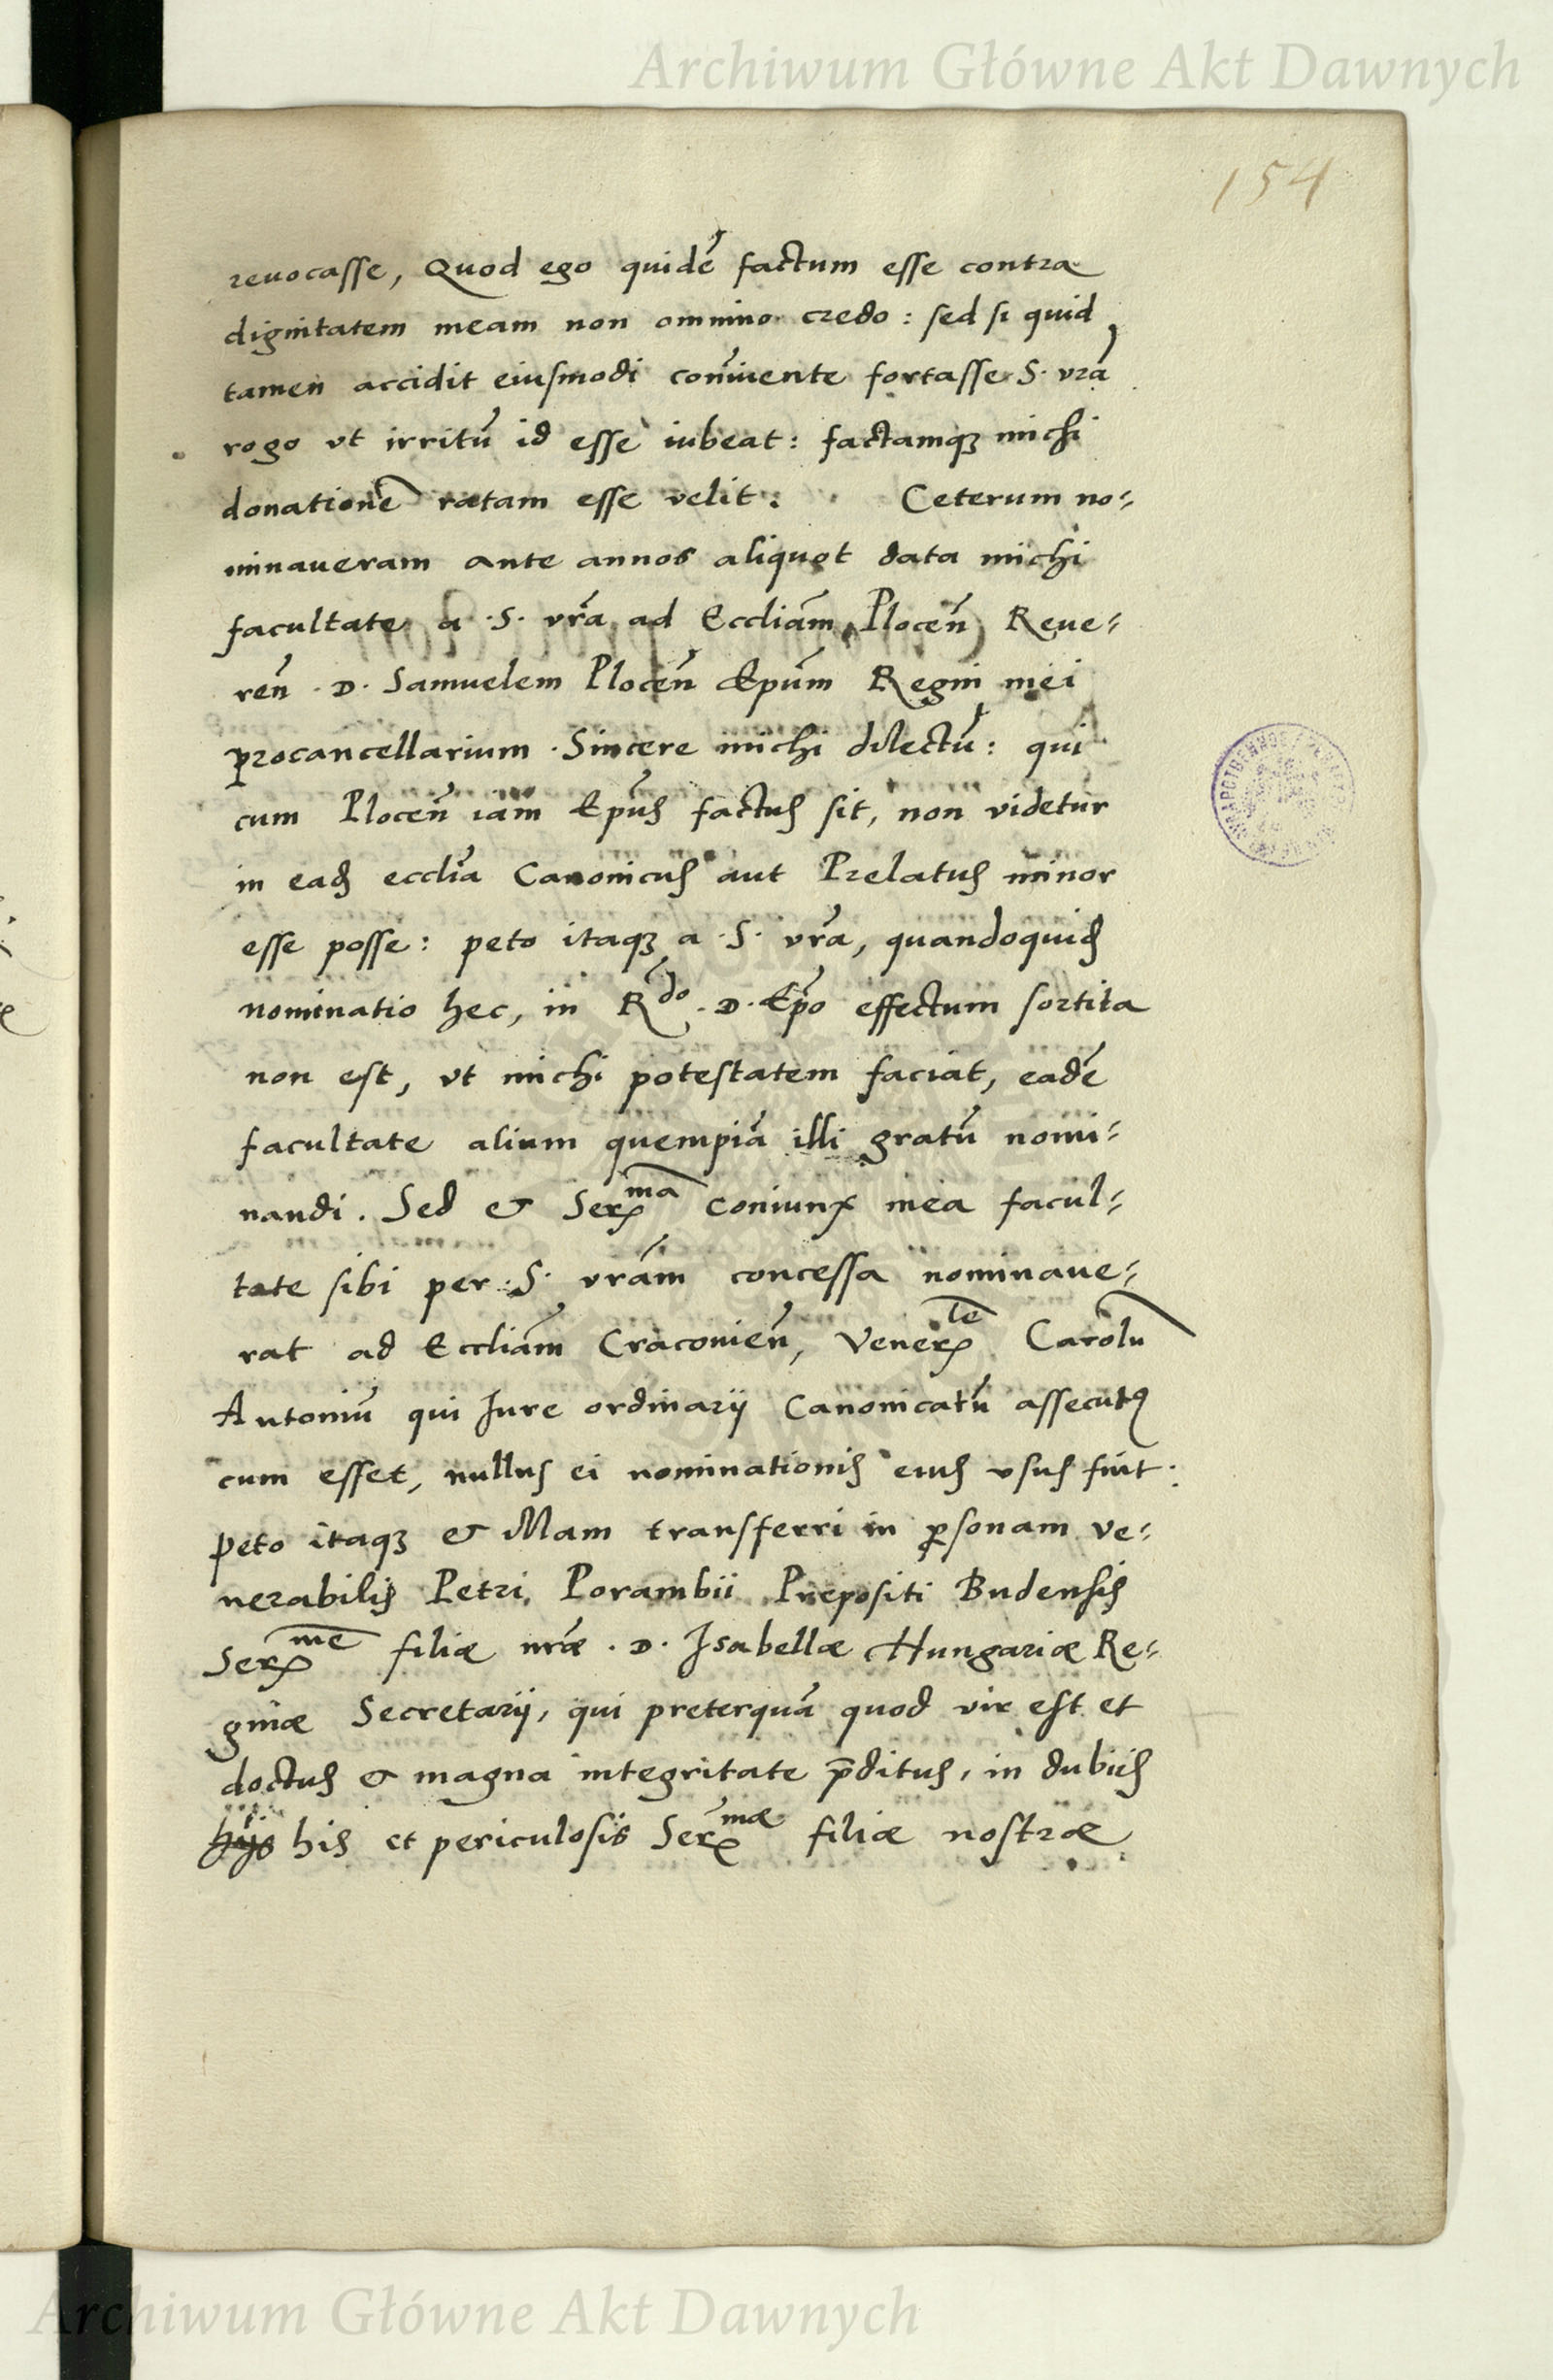 Archiwum Główne Akt Dawnych
154
reuocasse, Quod ego quidē factum esse contra
dignitatem meam non omnino credo: sed si quid
tamen accidit eiusmodi conniuente fortasse S. vrā
rogo vt irritū id esse iubeat: factamqꝫ michi
donationē ratam esse velit. Ceterum no-
minaueram ante annos aliquot data michi
facultate a .S. vrā ad Eccliām Plocēn Reue-
rēn .D. Samuelem Plocēn Epūm Regni mei
procancellarium . Sincere michi dilectū: qui
cum Plocēn iam Epūs factus sit, non videtur
in eadꝫ eccliā Canonicus aut Prelatus minor
esse posse: peto itaqꝫ a .S. vrā, quandoquidꝫ
nominatio hec, in Rdo .D. Epō effectum sortita
non est, vt michi potestatem faciat, eadē
facultate alium quempiā illi gratū nomi-
nandi. Sed & Serma coniunx mea facul-
tate sibi per .S. vrām concessa nominaue-
rat ad Eccliām Cracouiēn, Venerle Carolū
Antoniū qui Iure ordinarij Canonicatū assecutꝰ
cum esset, nullus ei nominationis eius vsus fuit.
peto itaqꝫ & illam transferri in ꝑsonam ve-
nerabilis Petri Porambii Prepositi Budensis
Serme filiæ nrǣ .D. Isabellæ Hungariæ Re-
ginæ Secretarij, qui preterquā quod vir est et
doctus & magna integritate p̄ditus, in dubiis
hijs his et periculosis Sermæ filiæ nostræ
Archiwum Główne Akt Dawnych